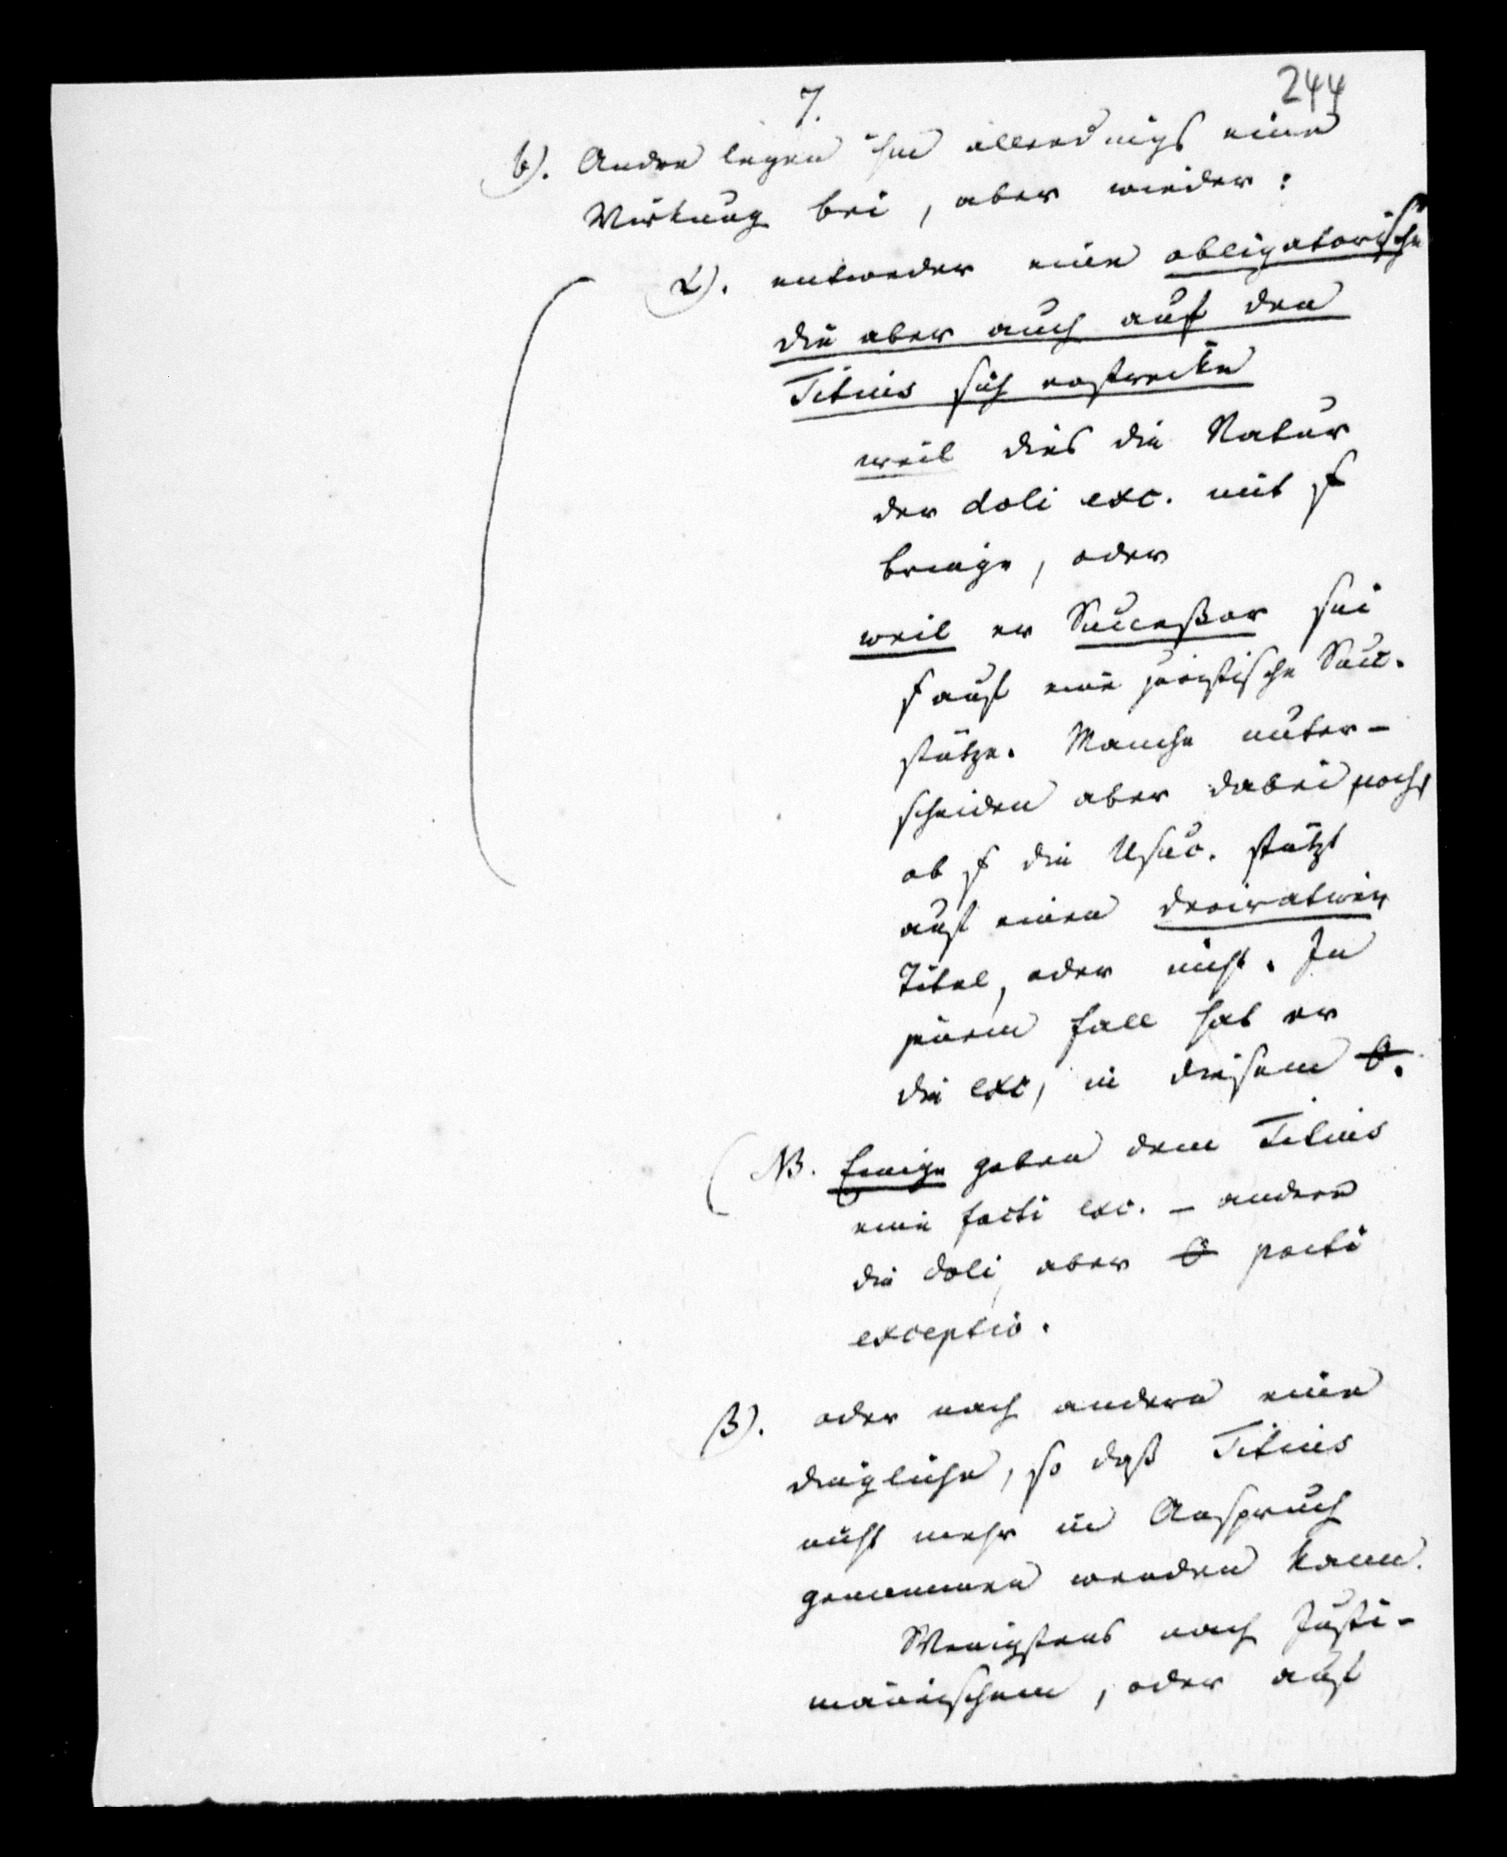 7.
244
b). Andre legen ihm allerdings eine
Wirkung bei, aber wieder:
α). entweder eine obligatorische
die aber auch auf den
Titius sich erstrecke
weil dies die Natur
der doli exc. mit s
bringe, oder
weil er Succeßor sei
s auf eine juristische Succ.
stütze. Manche unter-
scheiden aber dabei noch,
ob s die Usuc. stützt
auf einen derivativen
Titel, oder nicht. In
jenem Fall hat er
die exc, in diesem 0.
NB. Einige geben dem Titius
eine facti exc. – andere
die doli, aber 0 pacti
exceptio.
β). oder nach andern eine
dingliche, so daß Titius
nicht mehr in Anspruch
genommen werden kann.
Wenigstens nach Justi-
nianischem, oder auch